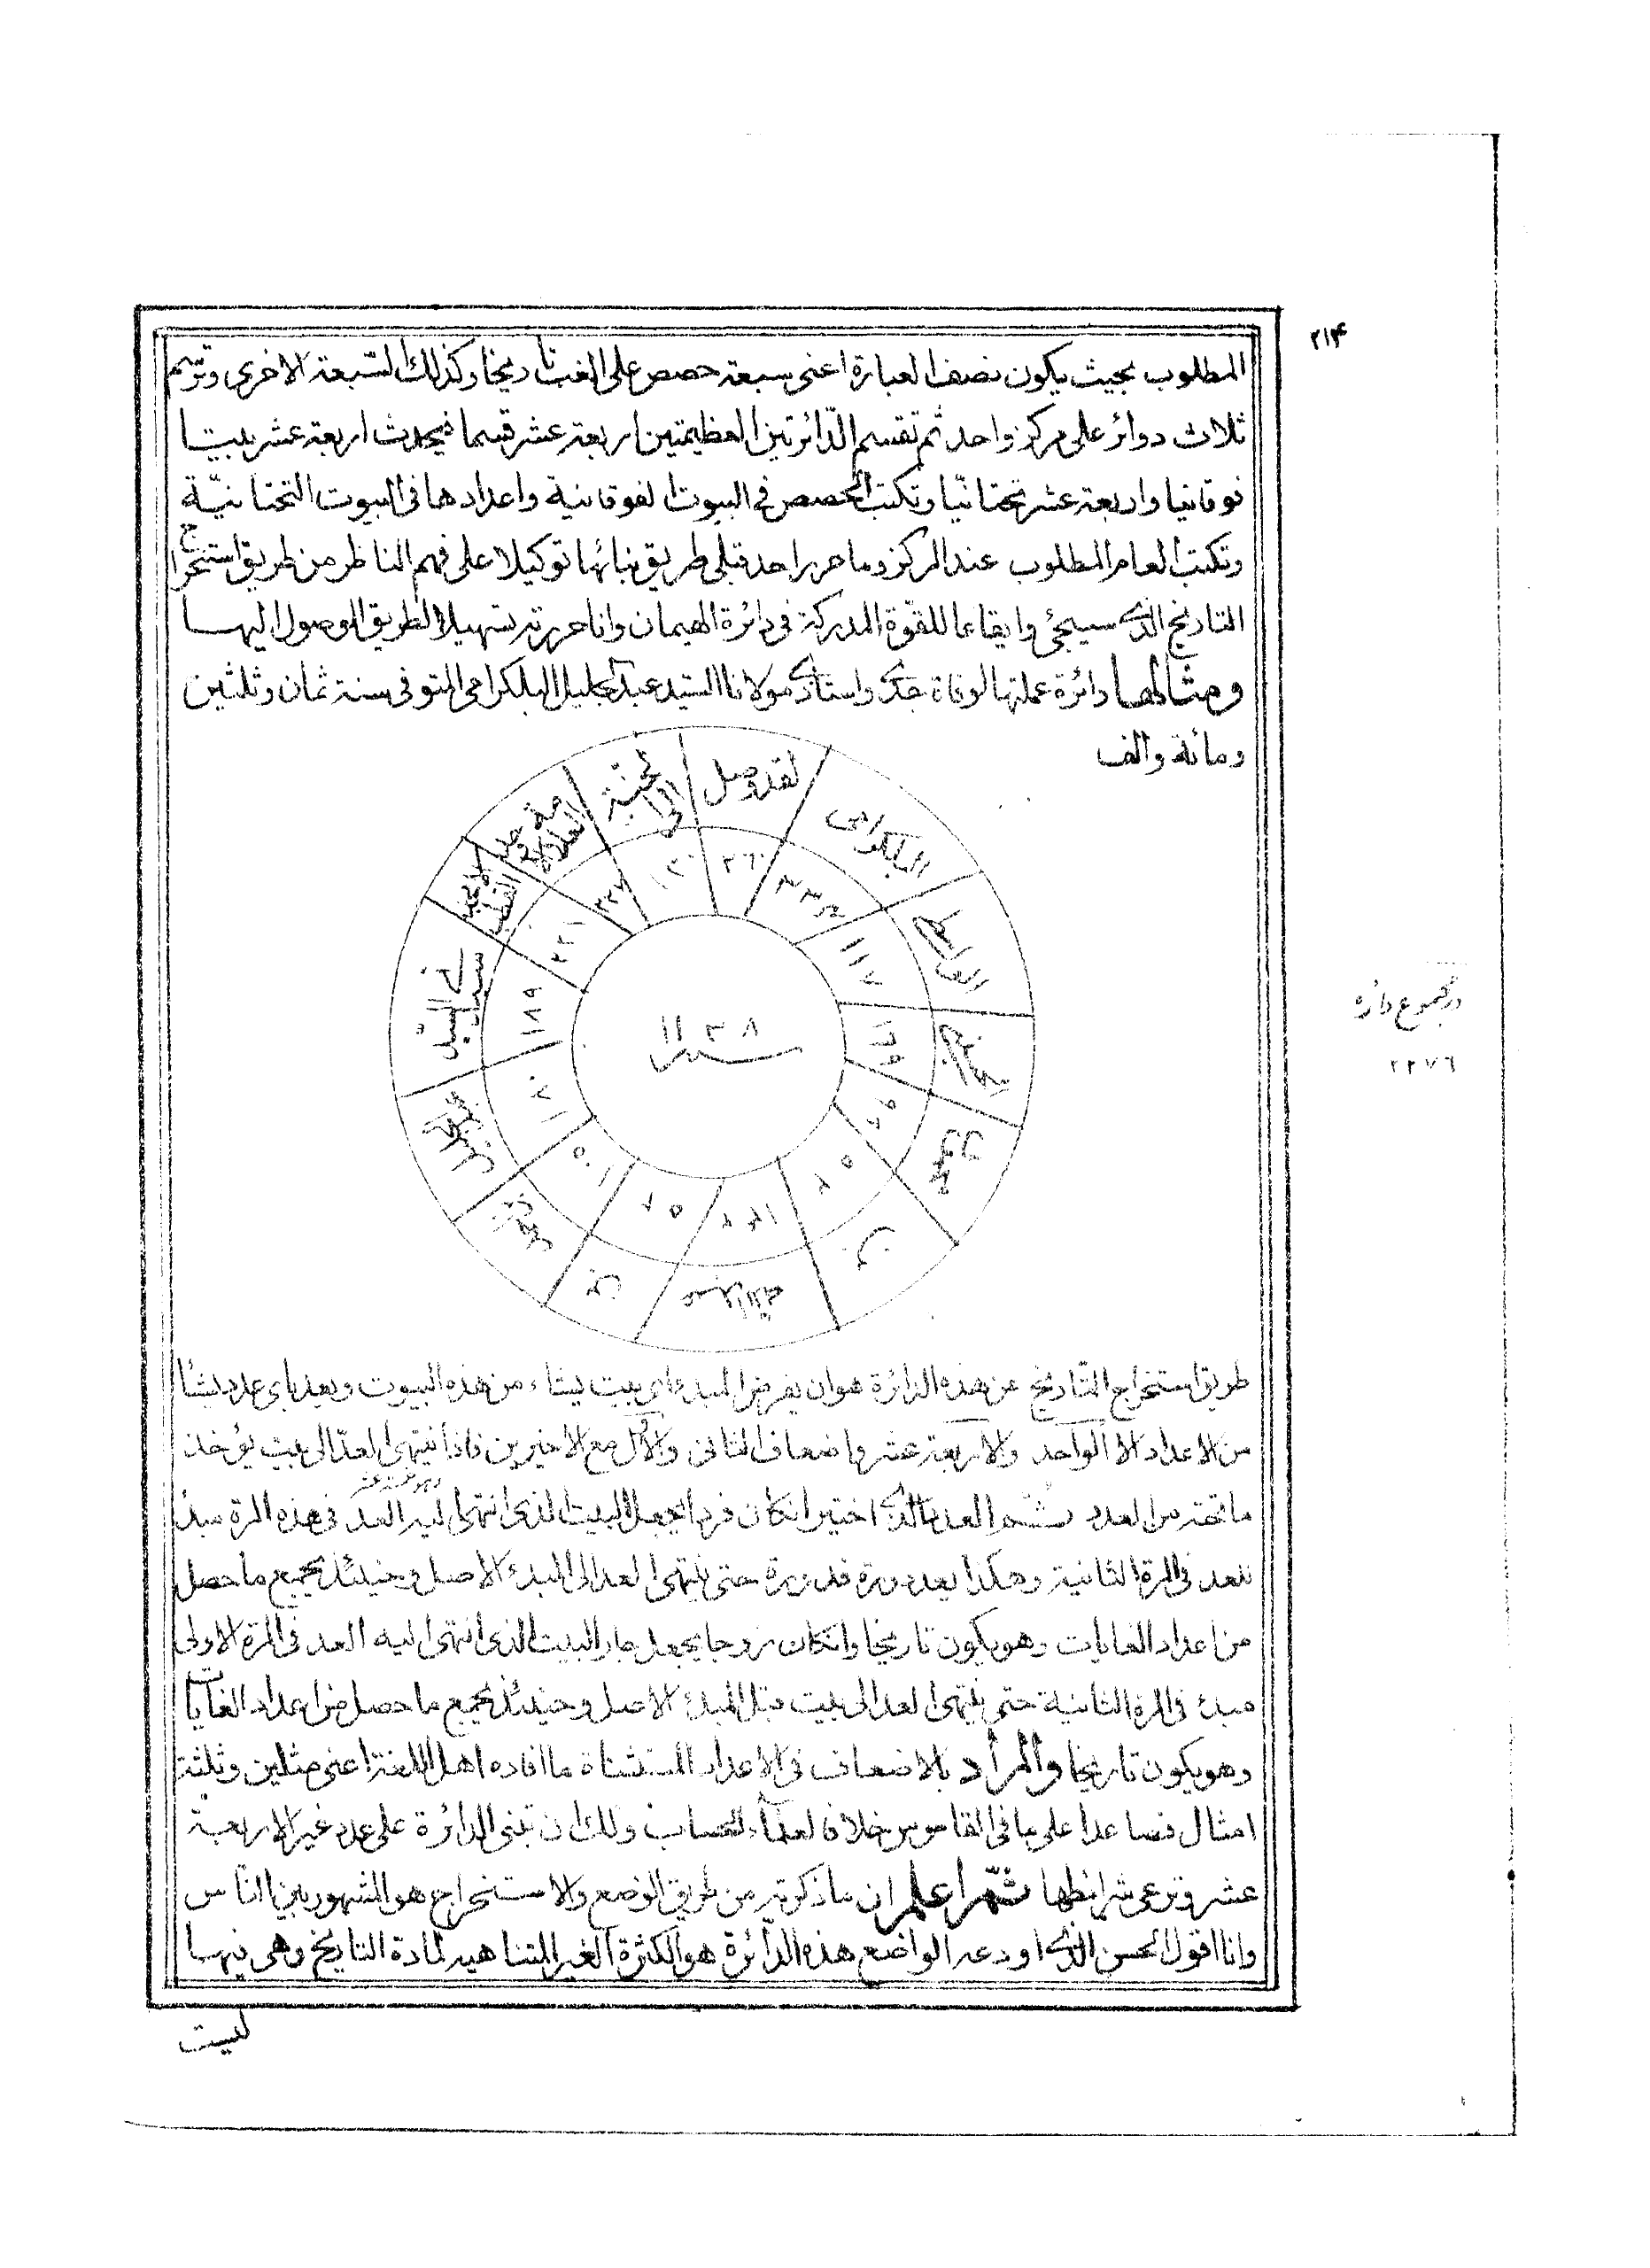 ٢١۴
المطلوب بحيث يكون نصف العبارة اعنى سبعة حصص على الغب تاريخا وكذلك السّبعة الاخرى وترسم
ثلاث دوائر على مركز واحد ثم تقسم الدّائرتين العظيمتين اربعة عشر قسما فيحدث اربعة عشر بيتا
فوقانيا واربعة عشر تحتانيّا وتكتب الحصص فى البيوت الفوقانية واعدادها فى البيوت التحتانيّة
وتكتب العام المطلوب عند المركز وما حرر احد قبلى طريق بنائها توكيلا على فهم الناظر من طريق استخراج
التاريخ الذى سيجئ وايقاعا للقوّة المدركة فى دائرة الهيمان وانا حررته تسهيلا لطريق الوصول اليها
ومثالها دائرة عملتها لوفاة جدى واستاذى مولانا السيد عبد الجليل البلكرامى المتوفى سنة ثمان وثلثين
ومائة والف
لقد وصل
البلكرامى
الواسطى
بن
عبد الجليل
بن
٢٦٠
٣٣٣
١١٧
١٦٩
٥٢
١٤٢
٥٢
١٠٥
١٨٠
١٨٩
٢٢١
٢٢٧
١٢٠
سنة ١١٣٨
در مجموع دائره
٢٢٧٦
طريق استخراج التاريخ من هذه الدائرة هو ان يفرض المبدء اى بيت يشاء من هذه البيوت ويعد باى عدد يشأ
من الاعداد الا الواحد والاربعة عشر واضعاف الثانى والاول مع الاخيرين فاذا انتهى العدّ الى بيت يؤخذ
ما تحته من العدد ثم العدد الذى اختير انكان فردا يجعل البيت الذى انتهى اليه العد فى هذه المرة مبدأ
للعد فى المرة الثانية وهكذا يعد دورة فدورة حتى ينتهى العد الى المبدء الاصل وحينئذ يجمع ما حصل
من اعداد الغايات وهو يكون تاريخا وانكان زوجا يجعل جار البيت الذى انتهى اليه العد فى المرة الاولى
مبدء فى المرة الثانية حتى ينتهى العد الى بيت قبل المبدء الاصل وحينئذ يجمع ما حصل من اعداد الغايات
وهو يكون تاريخا والمراد بالاضعاف فى الاعداد المستثناة ما افاده اهل اللغة اعنى مثلين وثلثة
امثال فصاعدا على ما فى القاموس خلافا لعلمآء الحساب ولك ان تبنى الدائرة على عدد غير الاربعة
عشر وترعى شرائطها ثمّ اعلم ان ما ذكرته من طريق الوضع والاستخراج هو المشهور بين الناس
وانا اقول الحسن الذى اودعه الواضع هذه الدّائرة هو الكثرة الغير المتناهية لمادة التاريخ وهى فيها
ليست